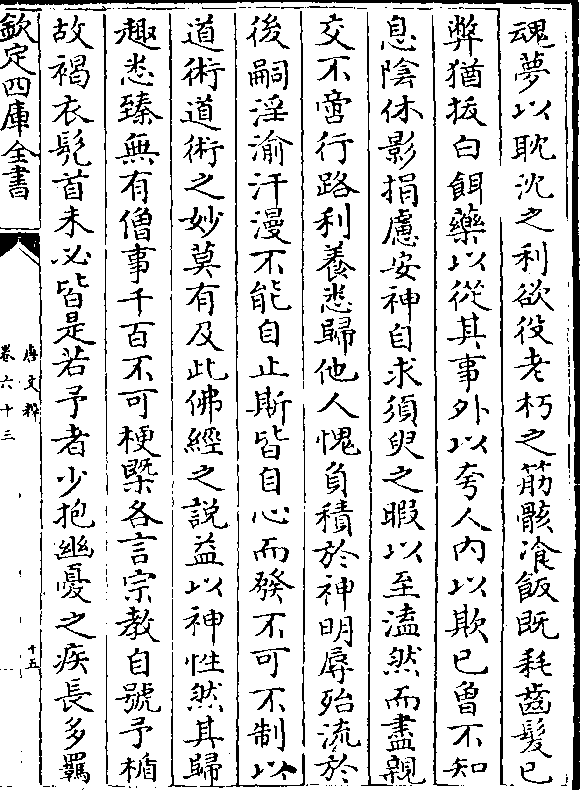 魂夢以耽沈之利欲役老朽之筋骸飡飯既耗齒髮已
弊猶拔白餌藥以從其事外以夸人内以欺已曾不知
息陰休影捐慮安神自求須臾之暇以至溘然而盡親
交不啻行路利養悉歸他人愧負積於神明辱殆流於
後嗣淫渝汗漫不能自止斯皆自心而發不可不制以
道術道術之妙莫有及此佛經之説益以神性然其歸
趣悉臻無有僧事千百不可梗槩各言宗教自號予楯
故褐衣髡首未必皆是若予者少抱幽憂之疾長多羈
欽定四庫全書
唐文粹
卷六十三
十五